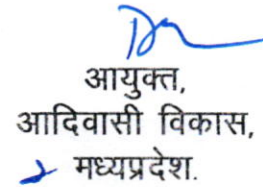 आयुक्त,
आदिवासी विकास,
मध्यप्रदेश.